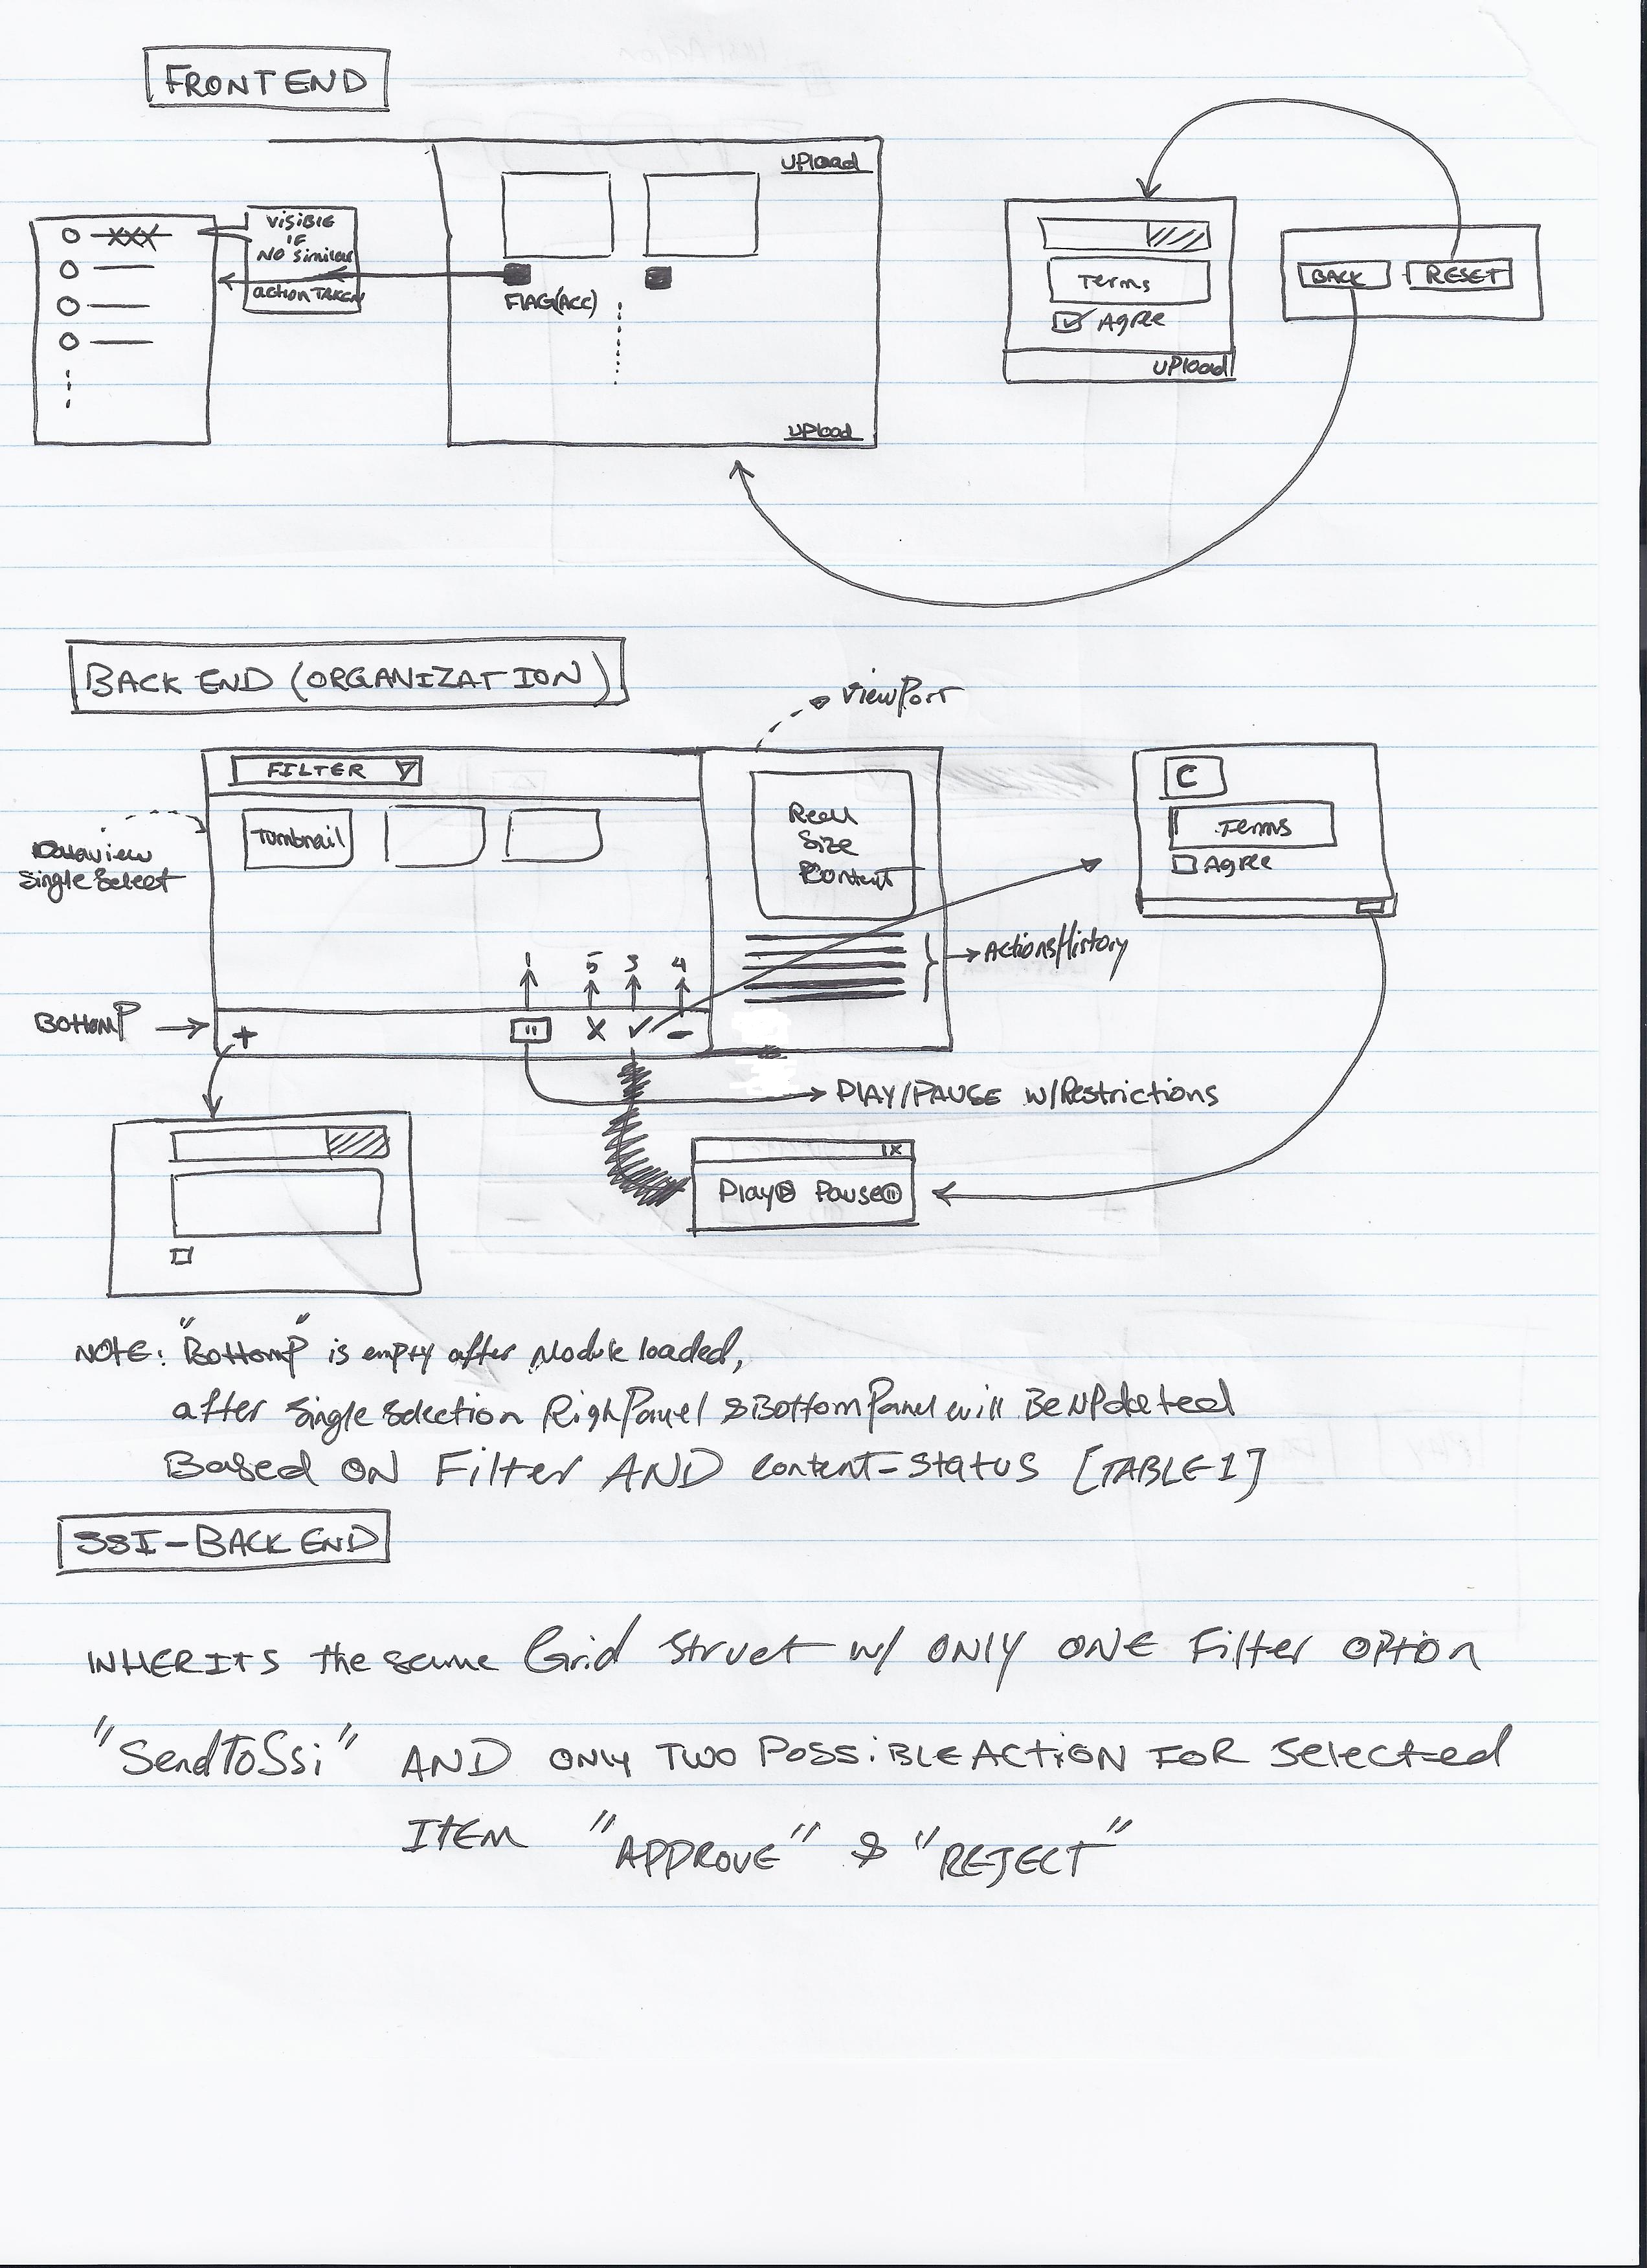 FRONT END
UPload
VISIBLE
IF
NO Similar
ACTION TAKEN
XXX
FLAG(ACC)
UPload
Terms
AGree
UPload
BACK
RESET
BACK END (ORGANIZATION)
ViewPort
FILTER
Tumbnail
Reall
Size
Content
C
Terms
AGree
Dataview
Single Select
1
5
3
4
Actions/History
BottomP
+
X
-
PLAY/PAUSE W/Restrictions
X
Play Pause
NOTE: "BottomP" is empty after Module loaded,
after Single Selection RighPanel & BottomPanel will Be UPdated
Based ON Filter AND Content-Status [TABLE 1]
SSI-BACK END
INHERITS the same Grid Struct w/ ONLY ONE Filter OPtion
"SendToSsi" AND ONLY TWO POSSiBLE ACTION FOR Selected
ITEM "APPROVE" & "REJECT"